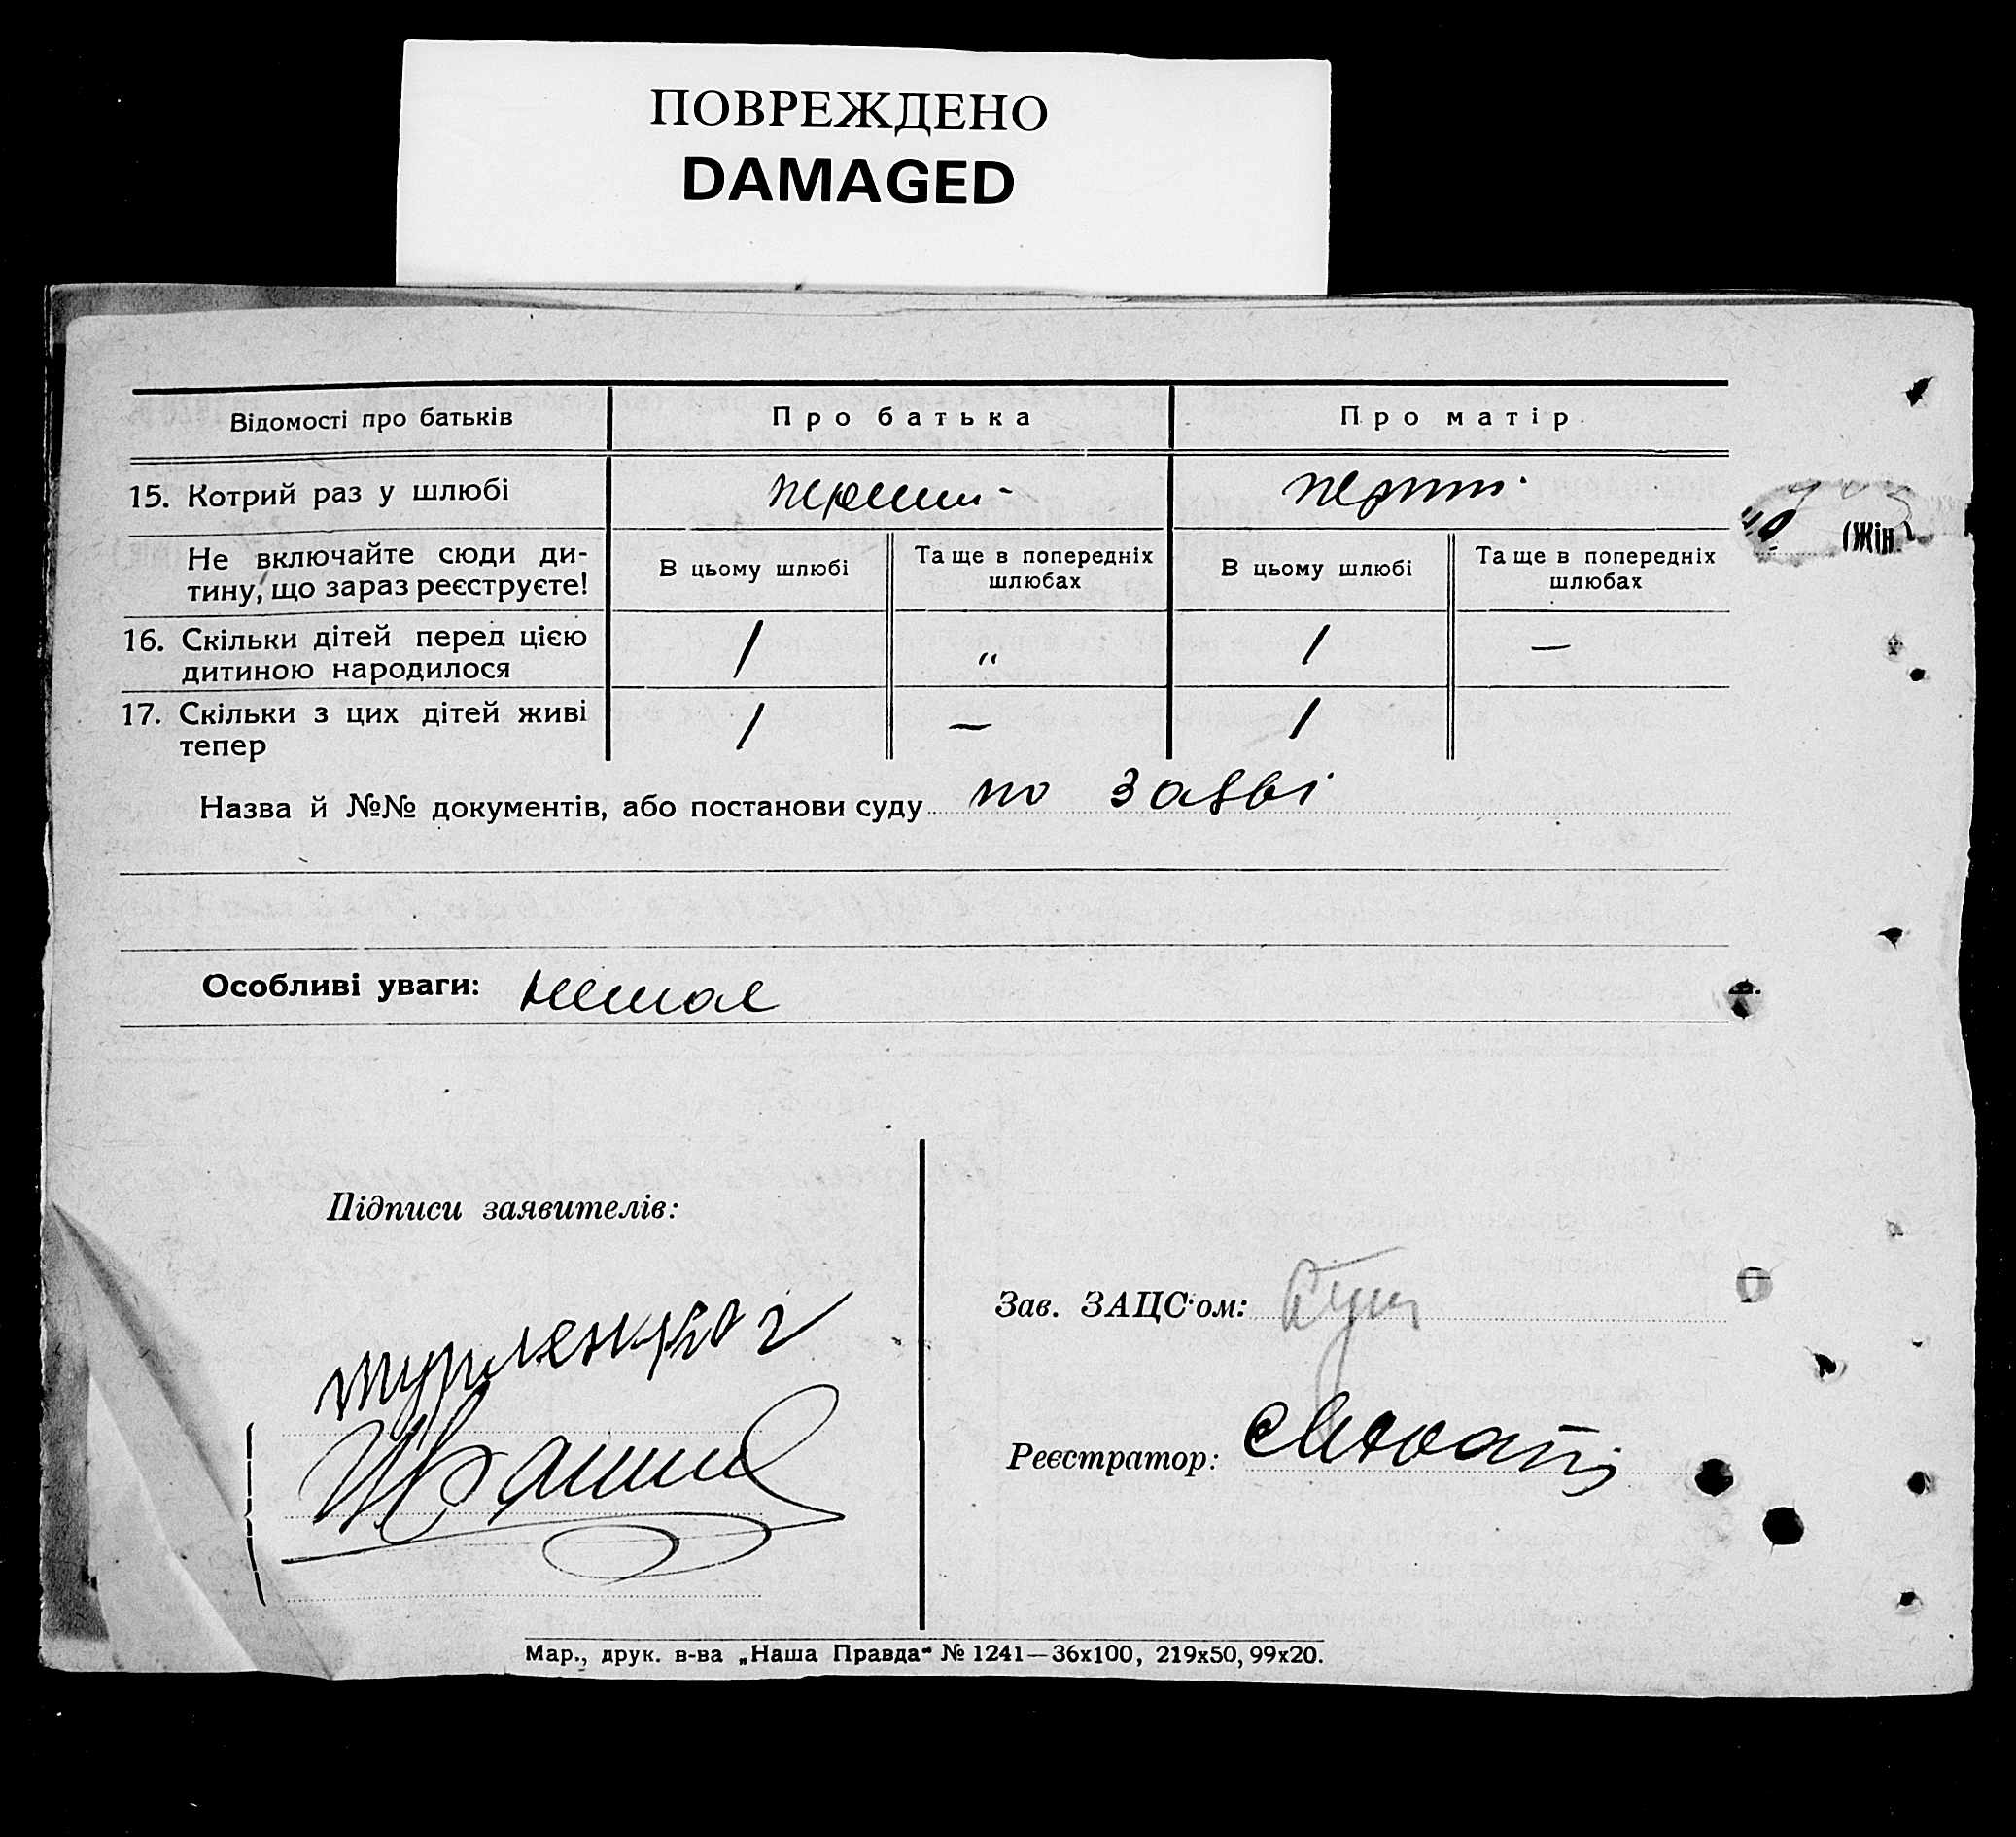 ПОВРЕЖДЕНО
DAMAGED
Відомості про батьків
Про батька
Про матір
15. Котрий раз у шлюбі
перший
перший
(Жін.
Не включайте сюди ди-
тину, що зараз реєструєте!
В цьому шлюбі
Та ще в попередніх
шлюбах
В цьому шлюбі
Та ще в попередніх
шлюбах
16. Скільки дітей перед цією
дитиною народилося
/
"
/
—
17. Скільки з цих дітей живі
тепер
/
—
/
Назва й №№ документів, або постанови суду по заяві
Особливі уваги: немає
Підписи заявителів:
Зав. ЗАЦС'ом:
Реєстратор:
Мар., друк. в-ва „Наша Правда" № 1241—36х100, 219х50, 99х20.